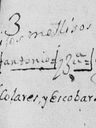 3
los mestisos
antonio 3a
Colares, y Escobar